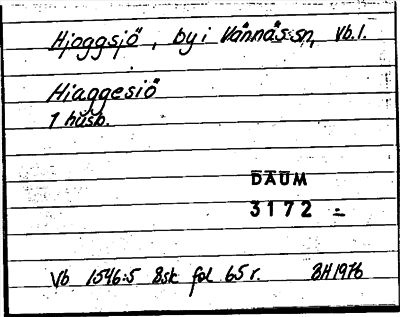 Hjoggsjö, by i Vännäs sn, Vb.l.
Hiaggesiö
1 husb.
DAUM
3172 =
Vb 1546:5 Bsk fol 65 r. BH 1976